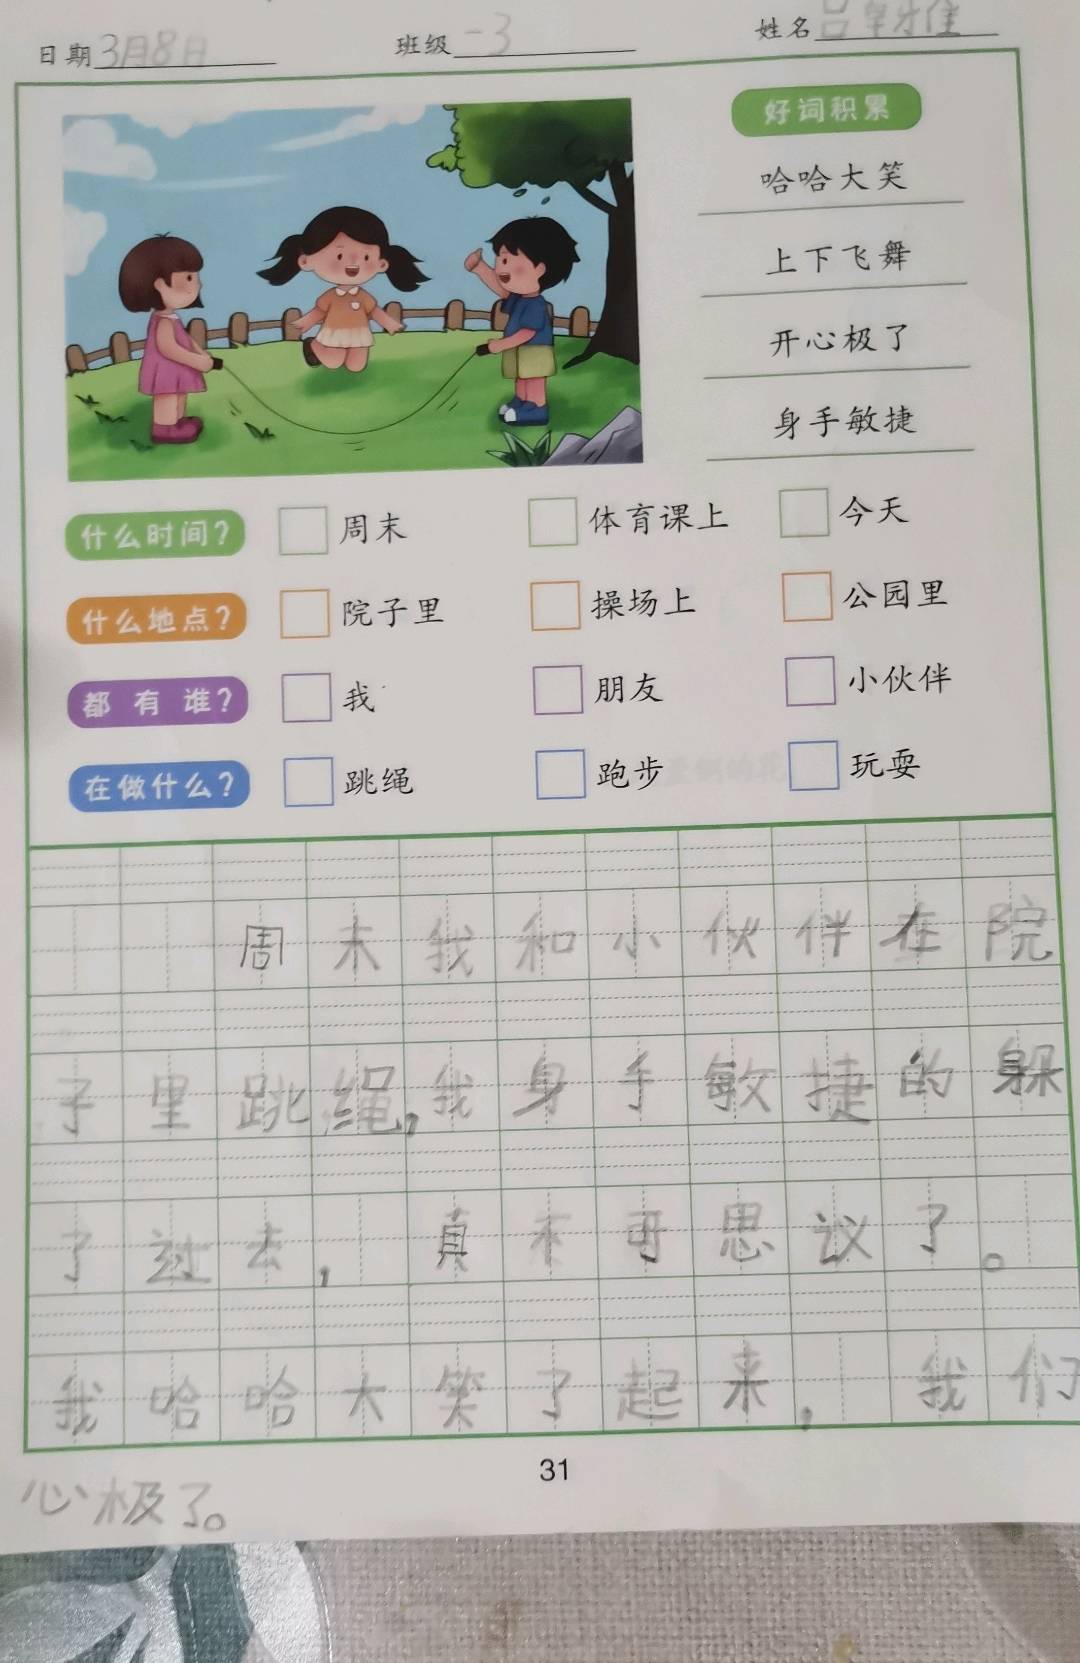 日期 3月8日 班级 一3 姓名 吕
好词积累
哈哈大笑
上下飞舞
开心极了
身手敏捷
什么时间? 周末 体育课上 今天
什么地点? 院子里 操场上 公园里
都有谁? 我 朋友 小伙伴
在做什么? 跳绳 跑步 玩耍
周末我和小伙伴在院
子里跳绳,我身手敏捷的躲
了过去,真不可思议了。
我哈哈大笑了起来,我们
31
心极了。